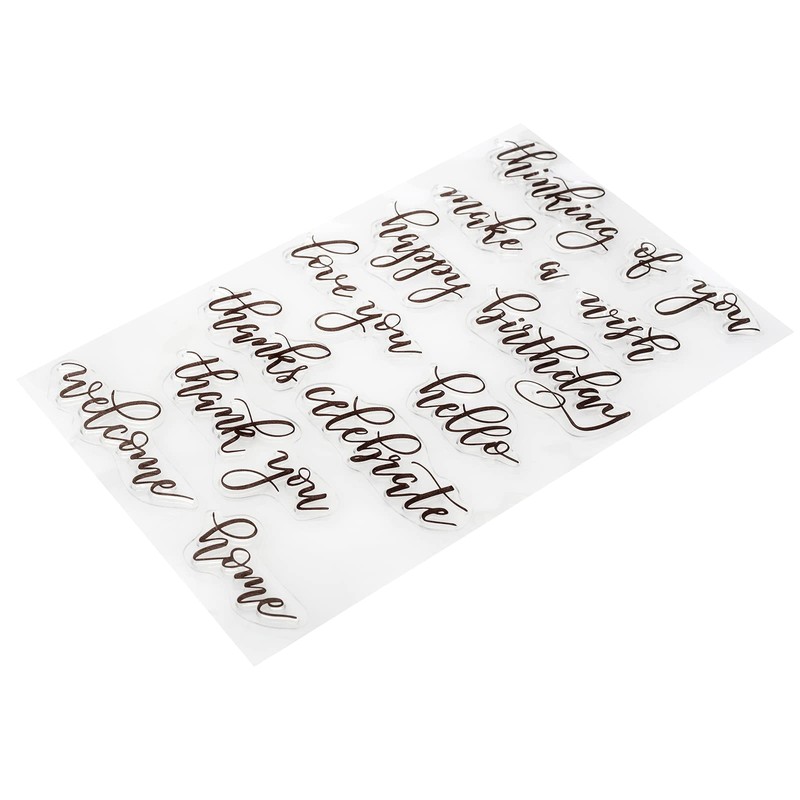 thinking of you
make a wish
happy birthday
love you
hello
thanks
celebrate
thank you
welcome
home